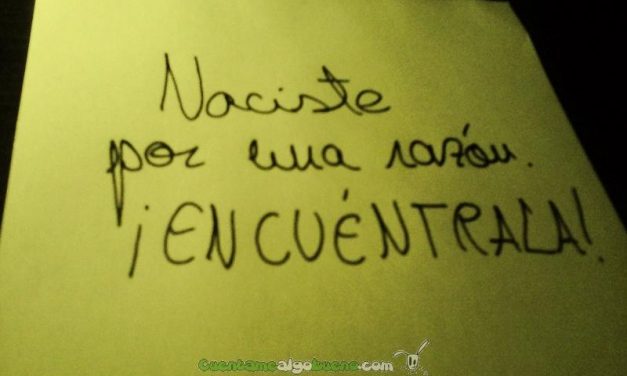 Naciste
por una razón.
¡ENCUÉNTRALA!
Cuentamealgobueno.com